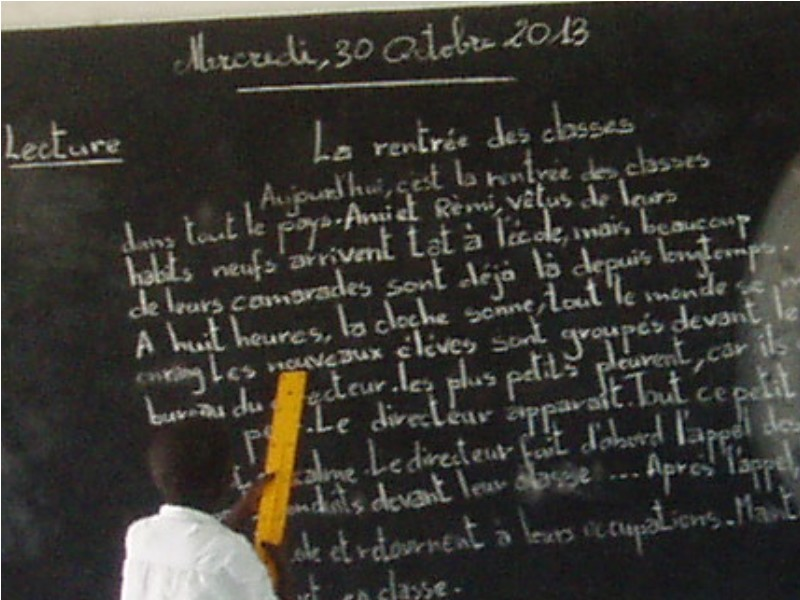 Mercredi, 30 Octobre 2013
Lecture
La rentrée des classes
Aujourd'hui, c'est la rentrée des classes
dans tout le pays. Ami et Rémi, vêtus de leurs
habits neufs arrivent tot à l'école, mais beaucoup
de leurs camarades sont déjà là depuis longtemps.
A huit heures, la cloche sonne, tout le monde se m
en rang Les nouveaux élèves sont groupés devant le
bureau du recteur. les plus petits pleurent, car ils
pe . Le directeur apparaît. Tout ce petit
calme. Le directeur fait d'abord l'appel des
onduits devant leur classe .... Après l'appel,
ole et retournent à leurs occupations. Maint
en classe.